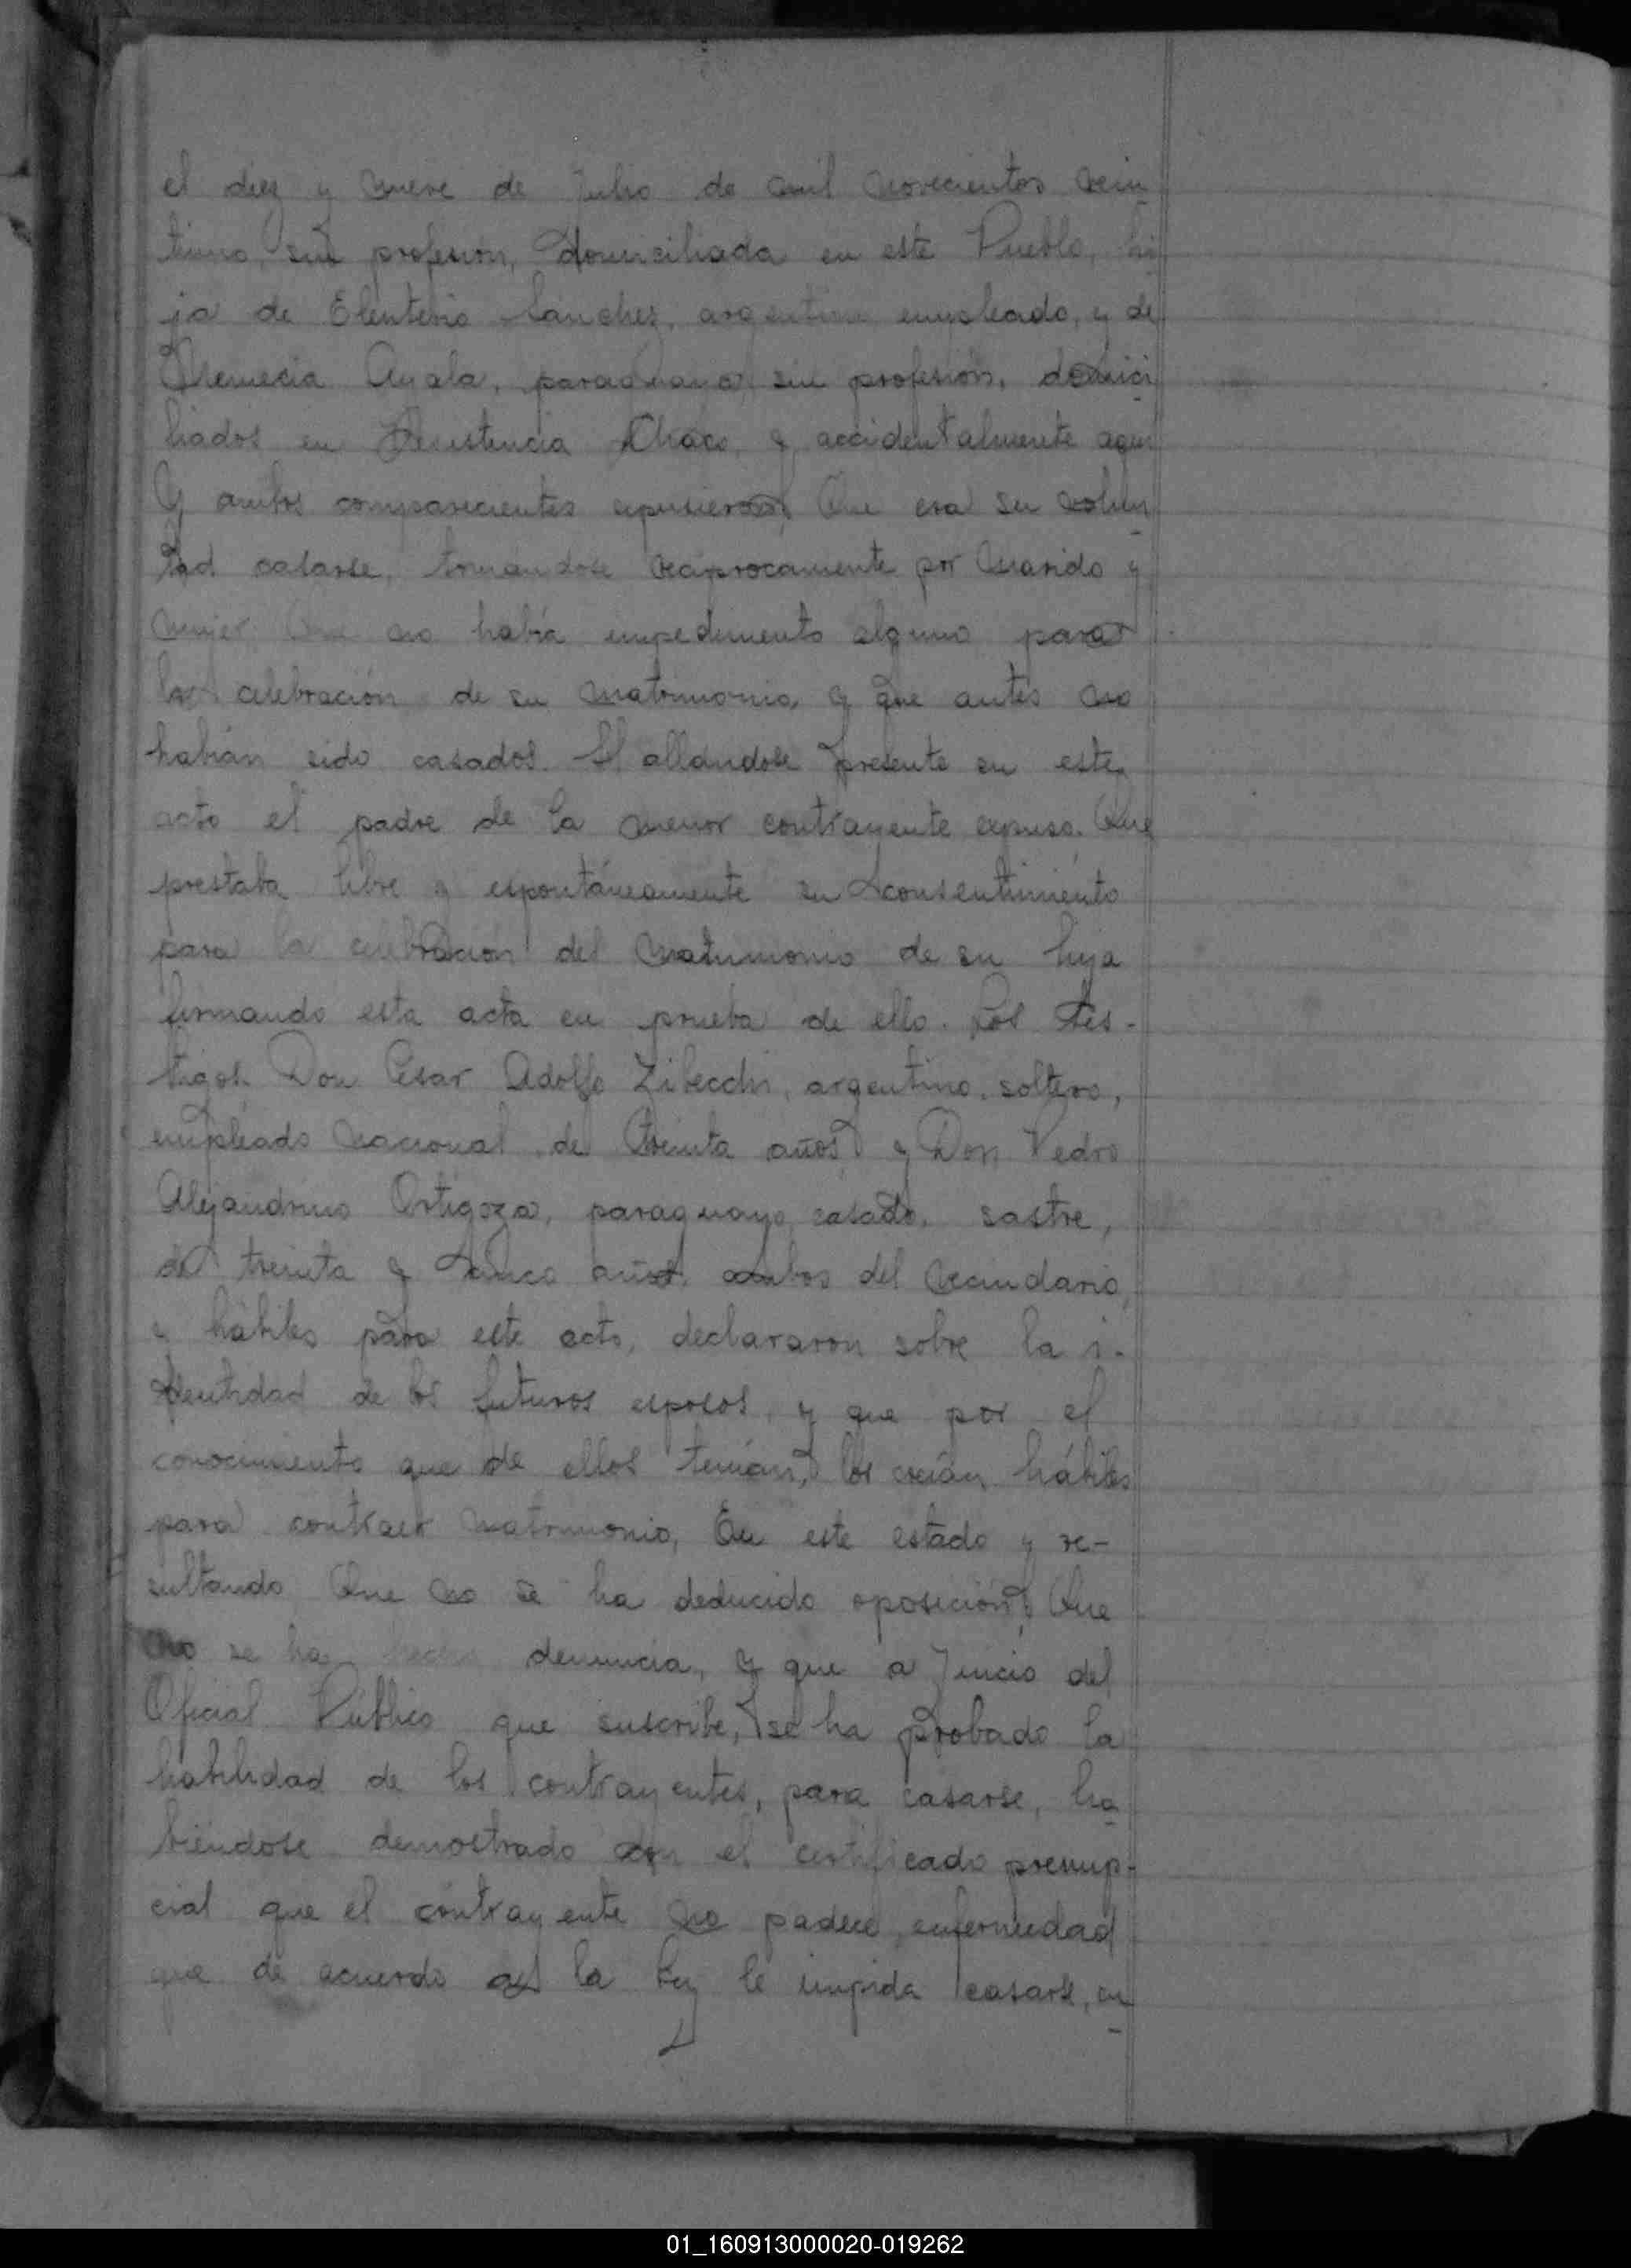 el diez y nueve de Julio de mil novecientos vein
tiuno, sin profesión, domiciliada en este Pueblo, hi
ja de Eleuterio Sanchez, argentino empleado, y de
Ayala, paraguaya, sin profesión, domici
liados en Resistencia Chaco, y accidentalmente aqui
Y ambos comparecientes expusieron, Que era su volun
tad casarse, tomandose reciprocamente por marido y
mujer. Que no había impedimento alguno para
la celebración de su matrimonio, y que antes no
habían sido casados. Hallandose presente en este
acto el padre de la menor contrayente expuso. Que
prestaba libre y espontáneamente su consentimiento
para la celebración del matrimonio de su hija
firmando esta acta en prueba de ello. Los tes-
tigos. Don Cesar Adolfo Zibecchi, argentino, soltero,
empleado nacional, de treinta años, y Don Pedro
Alejandrino Ortigoza, paraguayo, casado, sastre,
de treinta y cinco años, ambos del vecindario,
y hábiles para este acto, declararon sobre la i-
dentidad de los futuros esposos, y que por el
conocimiento que de ellos tenían, los creían hábiles
para contraer matrimonio, En este estado y re-
sultando Que no se ha deducido oposición, Que
no se ha hecho denuncia, y que a Juicio del
Oficial Público que suscribe, se ha probado la
habilidad de los contrayentes, para casarse, ha
biéndose demostrado con el certificado prenup-
cial que el contrayente no padece enfermedad
que de acuerdo a la Ley le impida casarse, en
01_160913000020-019262